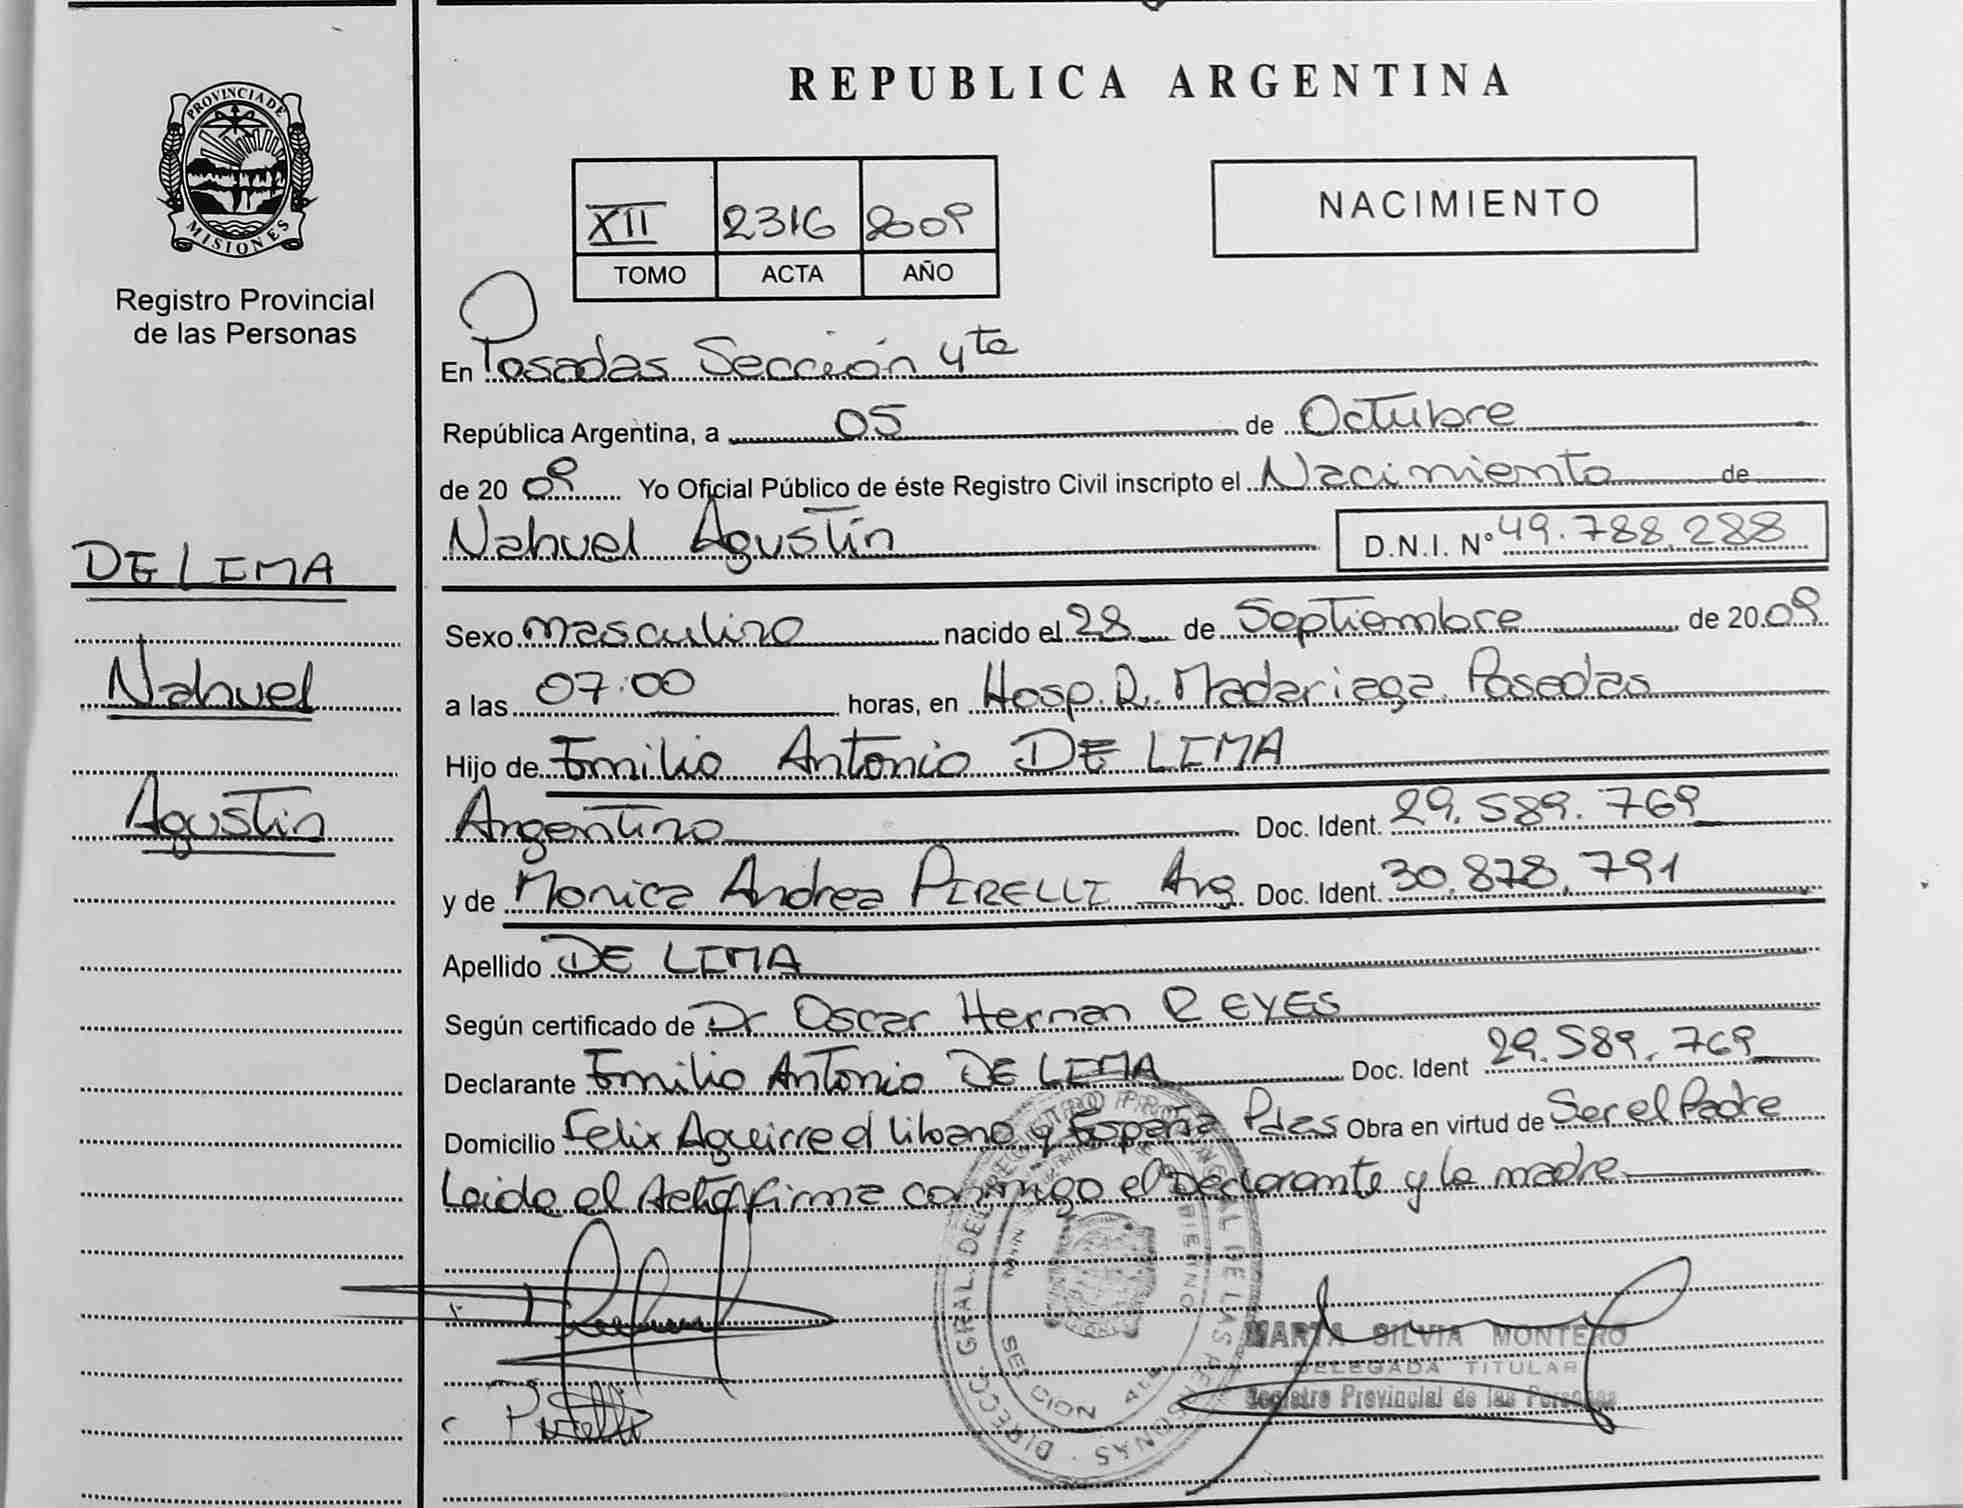 PROVINCIA DE
MISIONES
Registro Provincial
de las Personas
DE LIMA
Nahuel
Agustín
REPUBLICA ARGENTINA
XII 2316 2009
TOMO ACTA AÑO
NACIMIENTO
En Posadas Sección 4ta
República Argentina, a 05 de Octubre
de 20 09 Yo Oficial Público de éste Registro Civil inscripto el Nacimiento de
Nahuel Agustín D.N.I. Nº 49.788.288
Sexo masculino nacido el 28 de Septiembre de 20 09
a las 07:00 horas, en Hosp. R. Madariaga. Posadas
Hijo de Emilio Antonio DE LIMA
Argentino Doc. Ident. 29.589.769
y de Monica Andrea PIRELLI Arg. Doc. Ident. 30.878.791
Apellido DE LIMA
Según certificado de Dr Oscar Hernan REYES
Declarante Emilio Antonio DE LIMA Doc. Ident 29.589.769
Domicilio Felix Aguirre el Libano y España Pdas Obra en virtud de Ser el Padre
Leida el Acta firma conmigo el Declarante y la madre
DIRECC. GRAL. DEL REGISTRO PROVINCIAL DE LAS PERSONAS
SECCION 4ta
MARTA SILVIA MONTERO
DELEGADA TITULAR
Registro Provincial de las Personas